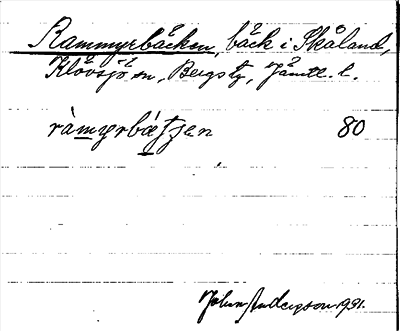 Rammyrbäcken, bäck i Skåland,
Klövsjö sn, Bergs tg, Jämtl. l.
ràmyrbæ̀tʃen 80
John Anderson 1931.